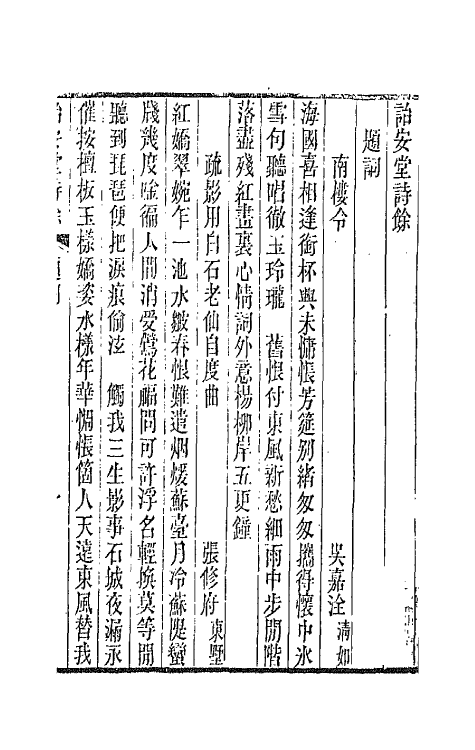 詒安堂詩餘
題詞
南樓令　吳嘉淦清如
海國喜相逢銜杯興未慵悵芳筵別緒匆匆攜得懷中氷
雪句聽唱徹玉玲瓏　舊恨付東風新愁細雨中步閒階
落盡殘紅畫裏心情詞外意楊柳岸五更鐘
疏影用白石老仙自度曲　張修府東墅
紅嬌翠婉乍一池水皺春恨難遣烟煖蘇臺月冷蘇隄蠻
牋幾度 徧人間消受鶯花福問可許浮名輕換莫等閒
聽到琵琶便把淚痕偷泫　觸我三生影事石城夜漏永
催按檀板玉樣嬌姿水樣年華惆悵箇人天遠東風替我
詒安堂詩餘　題詞　一